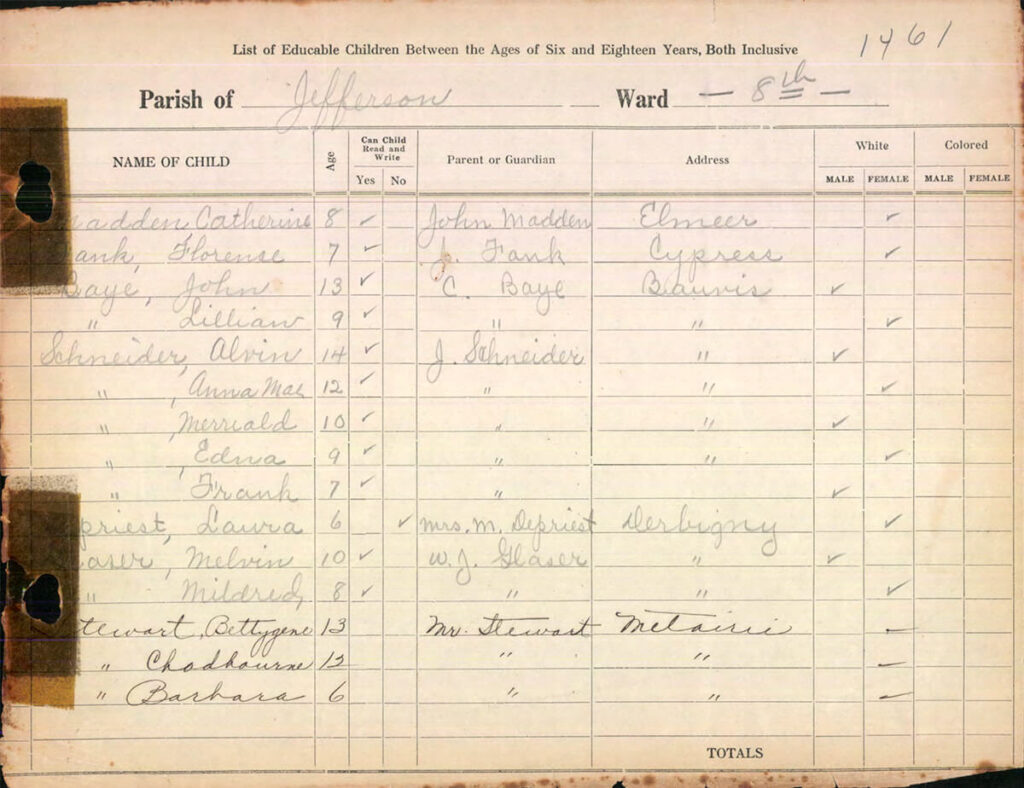 1461
List of Educable Children Between the Ages of Six and Eighteen Years, Both Inclusive
Parish of Jefferson Ward — 8th —
NAME OF CHILD Age Can Child Read and Write Yes No Parent or Guardian Address White MALE FEMALE Colored MALE FEMALE
adden, Catherine 8 ✓ John Madden Elmeer ✓
ank, Florense 7 ✓ J. Fank Cypress ✓
Baye, John 13 ✓ C. Baye Bauvis ✓
" Lillian 9 ✓ " " ✓
Schneider, Alvin 14 ✓ J. Schneider " ✓
" , Anna Mae 12 ✓ " " ✓
" , Merriald 10 ✓ " " ✓
" , Edna 9 ✓ " " ✓
" Frank 7 ✓ " ✓
priest, Laura 6 ✓ Mrs. M. Depriest Derbigny ✓
laser, Melvin 10 ✓ W. J. Glaser " ✓
" Mildred, 8 ✓ " " ✓
Stewart, Bettygene 13 Mr. Stewart Metairie –
" Chodbourne 12 " " –
" Barbara 6 " " –
TOTALS